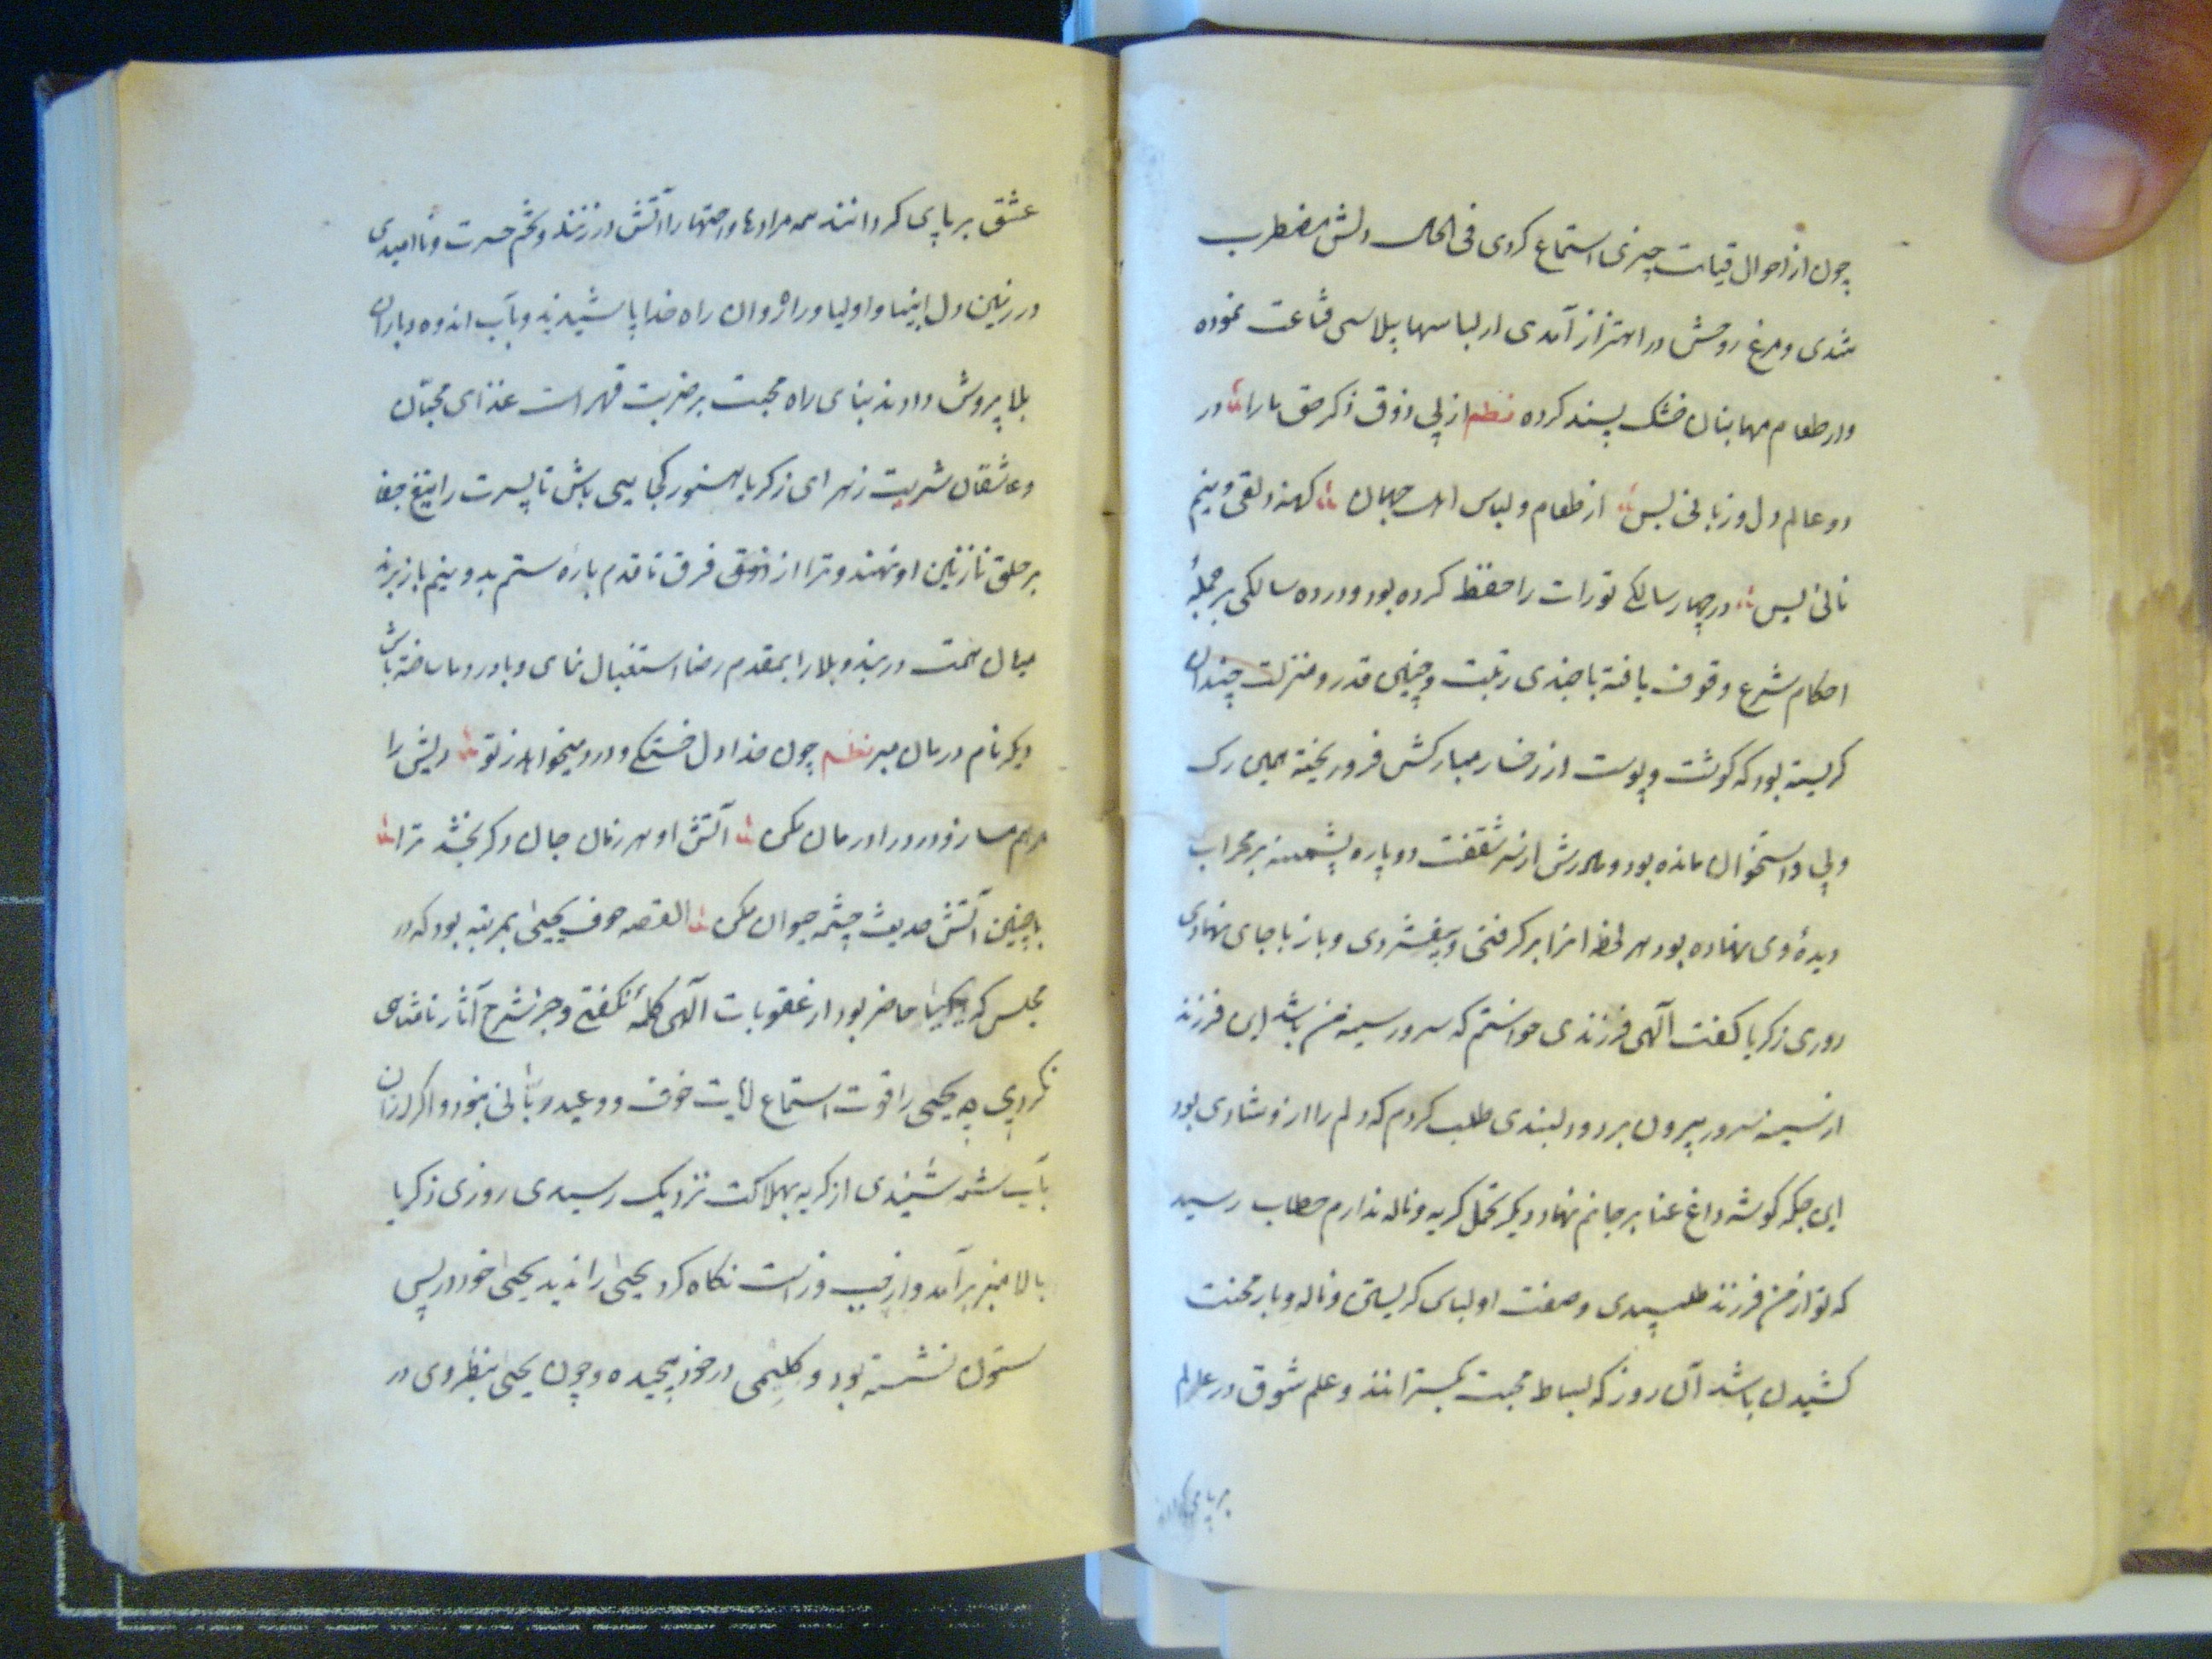 چون از احوال قیامت چیزی استماع کردی فی الحال دلش مضطرب
شدی و مرغ روحش در اهتزاز آمدی از لباسها بپلاسی قناعت نموده
و از طعام مها بنان خشک پسند کرده نظم از پی ذوق ذکر حق ما را در
دو عالم دل و زبانی بس از طعام و لباس اهل جهان کهنه دلقی و نیم
نانی بس در چهار سالگی تورات را حفظ کرده بود و در ده سالگی بر جمله
احکام شرع وقوف یافته با چندی رتبت و چنین قدر و منزلت چندان
کریسته بود که کوشت و پوست از رخسار مبارکش فرو ریخته همین رک
و پی و استخوان مانده بود و مادرش از سر شفقت دو پاره پشمینه بر محراب
دیدهٔ وی نهاده بود هر لحظه انرا بر کرفتی و بیفشردی و باز با جای نهادی
روزی زکریا کفت الهی فرزندی خواستم که سرور سینه من باشد این فرزند
از سینه سرور بیرون برد و دلبندی طلب کردم که دلم را از و شادی بود
این جکر کوشه داغ عنا بر جانم نهاد دیکر تحمل کریه و ناله ندارم خطاب رسید
که تو از من فرزند طلبیدی و صفت اولیاس کریستن و ناله و بار محنت
کشیدن باشد آن روز که بساط محبت بکسترانند و علم شوق در عالم
عشق بر پای کردانند همه مرادها و راحتها را آتش در زنند و تخم حسرت و ناامیدی
در زمین دل انبیا و اولیا و راه روان راه خدا پاشیدند و بآب اندوه و باران
بلا پرورش دادند بنای راه محبت بر ضربت قهر است غذای محبان
و عاشقان شربت زهر ای زکریا هنوز کجایی باش تا پسرت را تیغ جفا
بر حلق نازنین او نهند و ترا از فرق تا قدم باره ستم بدو نیم باز برند
میان همت در بند و بلا را بمقدم رضا استقبال نمای و با درد ما ساخته باش
دیکر نام درمان مبر نظم چون خدا دل خستکی و درد میخواهد ز تو ریش را
مرهم مساز و درد را درمان مکن آتش او هر زمان جان دکر بخشد ترا
با چنین آتش حدیث چشمه حیوان مکن القصه خوف یحیی بمرتبه بود که در
مجلس که یحیی حاضر بود از عقوبات الهی کلمهٔ نکفتی و جز شرح آثار
نکردی چه یحیی را قوت استماع آیات خوف و وعید ربانی نبود و اکر ازان
باب شمه شنیدی از کریه بهلاکت نزدیک رسیدی روزی زکریا
بالا منبر برآمد و از چپ و راست نکاه کرد یحیی را ندید یحیی خود در پس
ستون نشسته بود و کلیمی در خود پیچیده و چون یحیی بنظر وی در